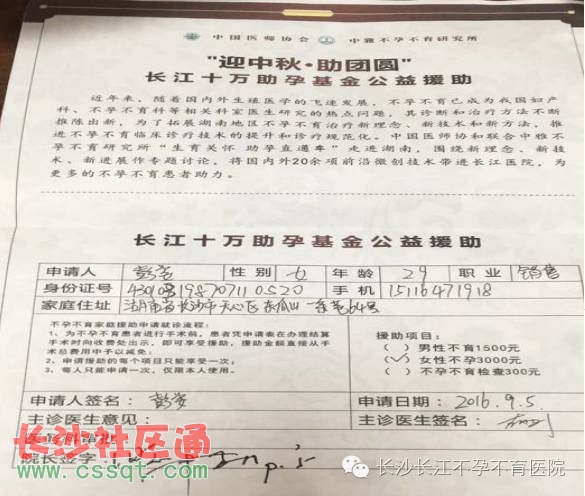 中国医师协会 中雅不孕不育研究所
"迎中秋·助团圆"
长江十万助孕基金公益援助
近年来，随着国内外生殖医学的飞速发展，不孕不育已成为我国妇产
科、不孕不育科等相关科室医生研究的热点问题，其诊断和治疗方法不断
推陈出新，为了拓展湖南地区不孕不育治疗新理念、新技术和新方法，推
进不孕不育临床诊疗技术的提升和诊疗规范化。中国医师协和联合中雅不
孕不育研究所"生育关怀 助孕直通车"走进湖南，围绕新理念、新技
术、新进展作专题讨论，将国内外20余项前沿微创技术带进长江医院，为
更多的不孕不育患者助力。
长江十万助孕基金公益援助
申请人 性别 女 年龄 29 职业 销售
身份证号 手机 15116471918
家庭住址 湖南省长沙市天心区
不孕不育家庭援助申请就诊流程：
1、为不孕不育患者进行手术前，患者凭申请表在办理结算
手术时向收费处出示，即可享受援助，援助金额直接从手
术总费用中予以减免；
2、申请援助的每个项目只能享受一次；
3、每人只能申请一次，仅限本人使用。
援助项目：
( ) 男性不育1500元
(√) 女性不孕3000元
( ) 不孕不育检查300元
申请人签名： 申请日期：2016.9.5
主诊医生意见： 主诊医生签名：
院长签字：
长沙社区通
www.cssqt.com
长沙长江不孕不育医院